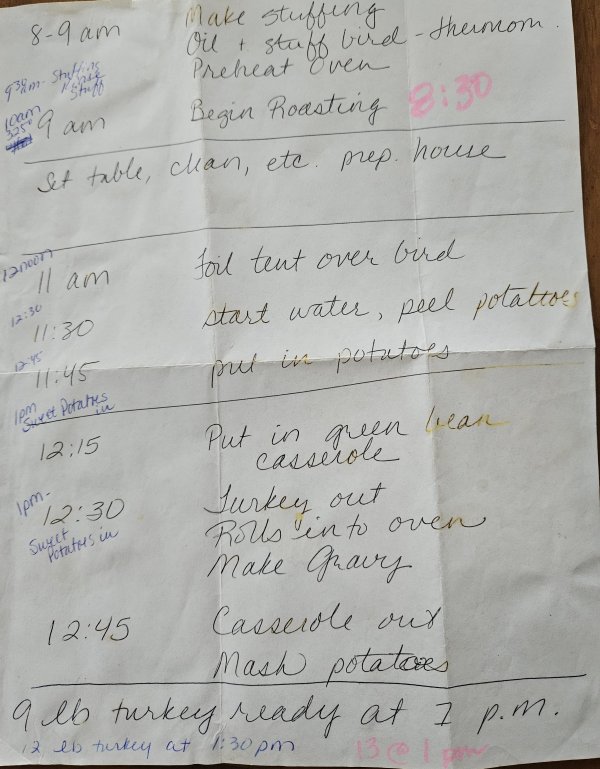 Make stuffing
8-9 am Oil + stuff bird - thermom.
Preheat Oven
9:30 am - Stuffing
Rinse
Stuff
10am
325°
9 am Begin Roasting 8:30
Set table, clean, etc. prep. house
12 noon
11 am Foil tent over bird
12:30
11:30 start water, peel potatoes
12:45
11:45 put in potatoes
1pm
Sweet Potatoes in
12:15 Put in green bean
casserole
1pm -
12:30 Turkey out
Sweet Potatoes in
Rolls into oven
Make Gravy
12:45 Casserole out
Mash potatoes
9 lb turkey ready at 1 p.m.
12 lb turkey at 1:30pm 13 @ 1 pm